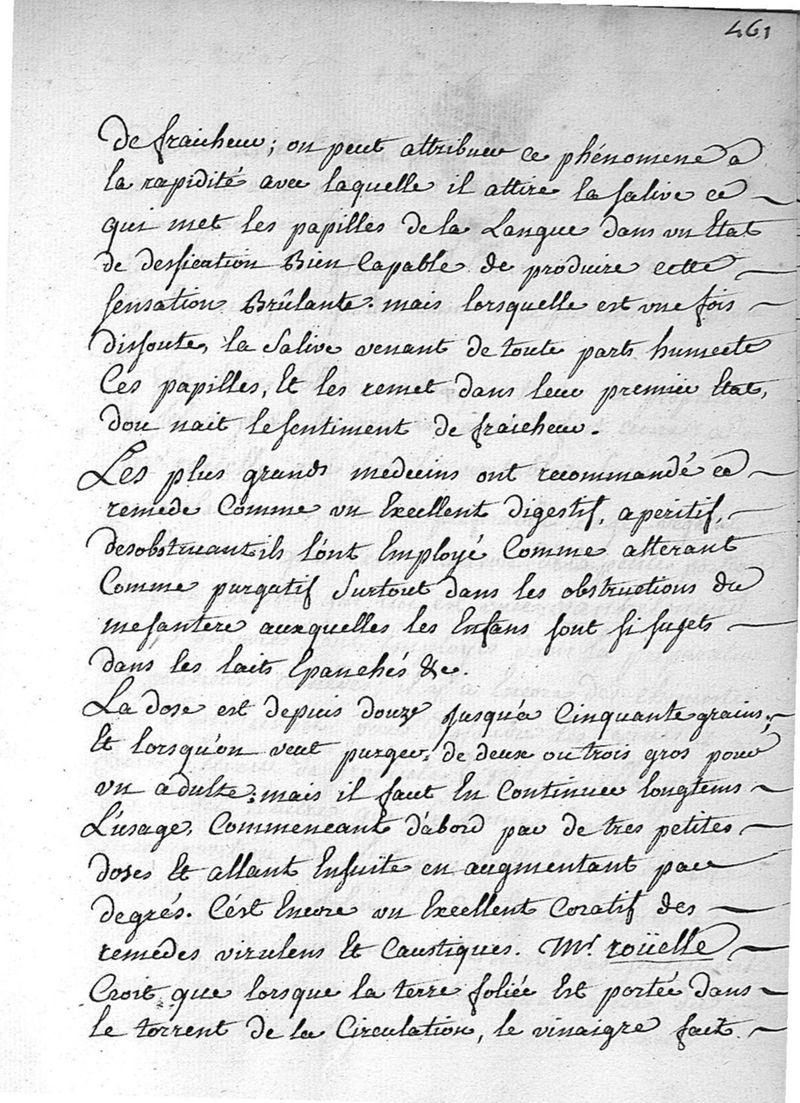 461
de fraicheur; on peut attribuer ce phénomene à
la rapidité avec laquelle il attire la salive ce
qui met les papilles de la Langue dans un Etat
de dessication Bien Capable de produire cette
sensation Brûlante. mais lorsquelle est une fois
dissoute, la Salive venant de toute parts humecte
Ces papilles, Et les remet dans leur premier Etat,
dou nait le sentiment de fraicheur.
Les plus grands medecins ont recommandé ce
remede Comme un Excellent digestif, aperitif,
desobstruant ils lónt Employé Comme alterant
Comme purgatif Surtout dans les obstructions du
mesantere auxquelles les Enfans sont si sujets
dans les laits Epanchés &c.
La dose est depuis douze jusqu'a Cinquante grains;
Et lorsqu'on veut purger, de deux ou trois gros pour
un adulte; mais il faut En Continuer longtems
L'usage, Commencant d'abord par de tres petites
doses Et allant Ensuite en augmentant par
degrés. Cést Encore un Excellent Coratif des
remedes virulens Et Caustiques. Mr. roüelle
Croit que lorsque la terre foliée Est portée dans
le torrent de la Circulation, le vinaigre fait